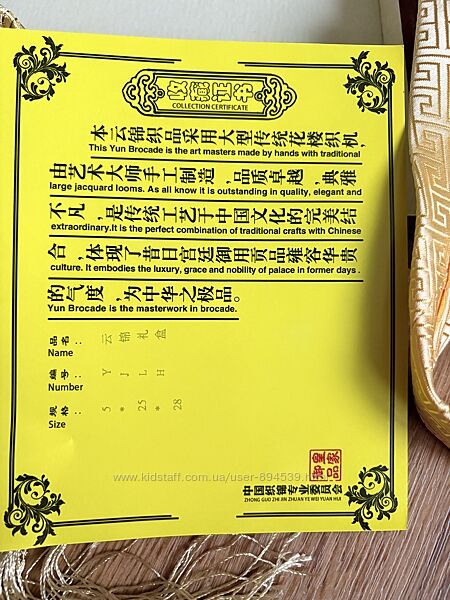 收藏证书
COLLECTION CERTIFICATE
本云锦织品采用大型传统花楼织机，
This Yun Brocade is the art masters made by hands with traditional
由艺术大师手工制造，品质卓越，典雅
large jacquard looms. As all know it is outstanding in quality, elegant and
不凡，是传统工艺于中国文化的完美结
extraordinary.It is the perfect combination of traditional crafts with Chinese
合，体现了昔日宫廷御用贡品雍容华贵
culture. It embodies the luxury, grace and nobility of palace in former days .
的气度，为中华之极品。
Yun Brocade is the masterwork in brocade.
品名： 云锦礼盒
Name
编号： Y J L H
Number
规格： 5 * 25 * 28
Size
皇家御品
中国织锦专业委员会
ZHONG GUO ZHI JIN ZHUAN YE WEI YUAN HUI
www.kidstaff.com.ua/user-894539.html